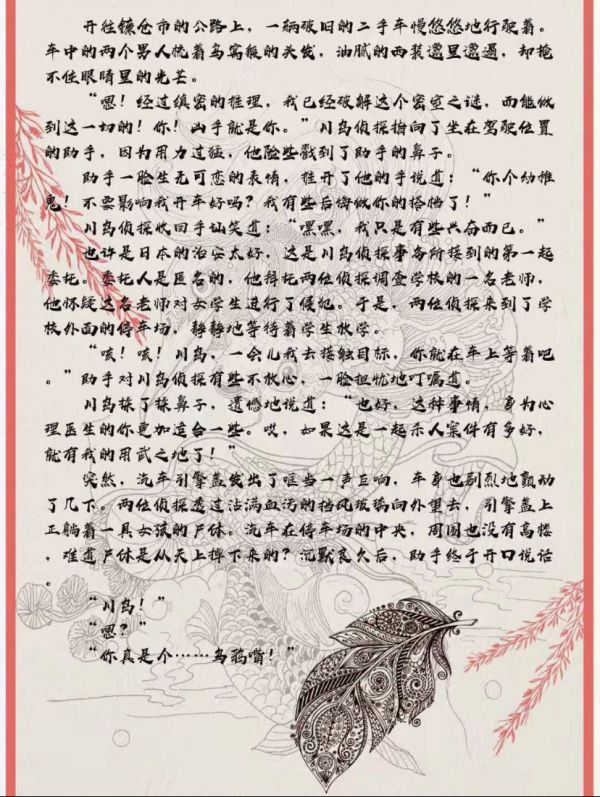 开往镰仓市的公路上，一辆破旧的二手车慢悠悠地行驶着。
车中的两个男人梳着乌窝般的头发，油腻的西装邋里邋遢，却掩
不住眼睛里的光芒。
“嗯！经过缜密的推理，我已经破解这个密室之谜，而能做
到这一切的！你！凶手就是你。”川鸟侦探指向了坐在驾驶位置
的助手，因为用力过猛，他险些戳到了助手的鼻子。
助手一脸生无可恋的表情，推开了他的手说道：“你个幼稚
鬼！不要影响我开车好吗？我有些后悔做你的搭档了！”
川鸟侦探收回手讪笑道：“嘿嘿，我只是有些兴奋而已。”
也许是日本的治安太好，这是川鸟侦探事务所接到的第一起
委托。委托人是匿名的，他拜托两位侦探调查学校的一名老师，
他怀疑这名老师对女学生进行了侵犯。于是，两位侦探来到了学
校外面的停车场，静静地等待着学生放学。
“咳！咳！川鸟，一会儿我去接触目标，你就在车上等着吧
。”助手对川鸟侦探有些不放心，一脸担忧地叮嘱道。
川鸟揉了揉鼻子，遗憾地说道：“也好，这种事情，身为心
理医生的你更加适合一些。哎，如果这是一起杀人案件有多好，
就有我的用武之地了！”
突然，汽车引擎盖发出了哐当一声巨响，车身也剧烈地颤动
了几下。两位侦探透过沾满血污的挡风玻璃向外望去，引擎盖上
正躺着一具女孩的尸体。汽车在停车场的中央，周围也没有高楼
，难道尸体是从天上掉下来的？沉默良久后，助手终于开口说话
。
“川鸟！”
“嗯？”
“你真是个……乌鸦嘴！”